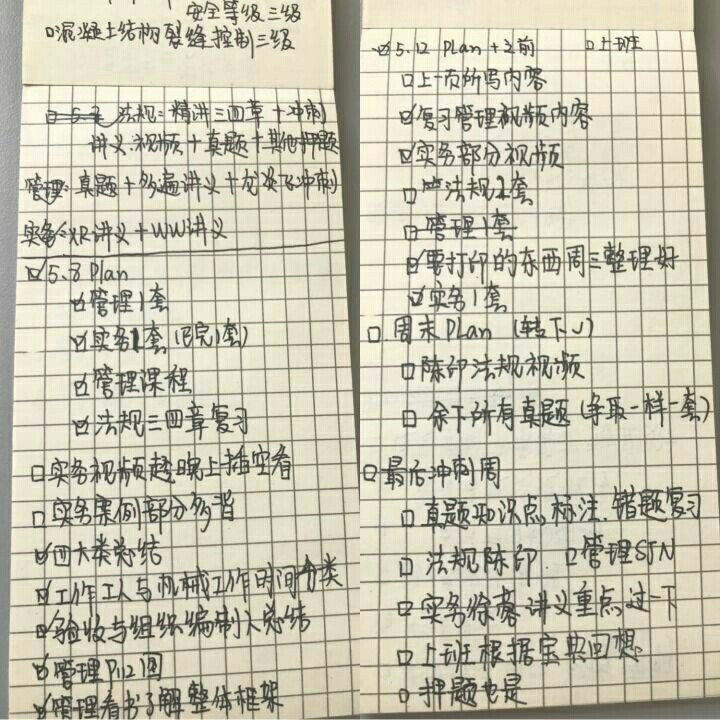 安全等级三级
混凝土结构裂缝控制三级
法规:精讲三四章+冲刺
讲义.视频+真题+其他押题
管理:真题+多遍讲义+龙炎飞冲刺
实务:XR讲义+WW讲义
5.8 Plan
管理1套
实务1套(BB完1套)
管理课程
法规三四章复习
实务视频趁晚上插空看
实务案例部分多背
四大类总结
工作工人与机械工作时间分类
验收与组织编制人总结
管理P112图
管理看书了解整体框架
5.12 Plan+之前 上班
上一页所写内容
复习管理视频内容
实务部分视频
法规2套
管理1套
要打印的东西周三整理好
实务1套
周末Plan (转下↓)
陈印法规视频
余下所有真题(争取一样一套)
最后冲刺周
真题知识点标注.错题复习
法规陈印 管理SJN
实务徐蓉讲义重点过一下
上班根据宝典回想
押题也是